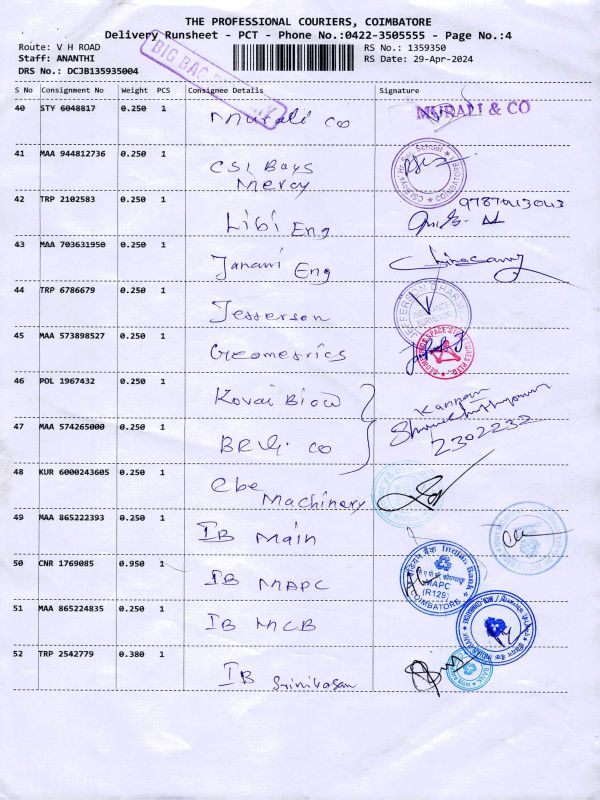 THE PROFESSIONAL COURIERS, COIMBATORE
Delivery Runsheet - PCT - Phone No.:0422-3505555 - Page No.:4
Route: V H ROAD
RS No.: 1359350
Staff: ANANTHI
RS Date: 29-Apr-2024
DRS No.: DCJB135935004
BIG BAG
S No Consignment No Weight PCS Consignee Details Signature
40 STY 6048817 0.250 1 Murali co MURALI & CO
41 MAA 944812736 0.250 1 CSI Boys
Mercy
42 TRP 2102583 0.250 1 Libi Eng
43 MAA 703631950 0.250 1 Janani Eng
44 TRP 6786679 0.250 1 Jesserson
45 MAA 573898527 0.250 1 Geometrics
46 POL 1967432 0.250 1 Kovai Bio Kannan
47 MAA 574265000 0.250 1 co 2302232
48 KUR 6000243605 0.250 1 Cbe
Machinery
49 MAA 865222393 0.250 1 IB Main
50 CNR 1769085 0.950 1 IB MAPC
Indian Bank
MAPC
(R129)
COIMBATORE
51 MAA 865224835 0.250 1 IB MCB
52 TRP 2542779 0.380 1 IB Srinivasan